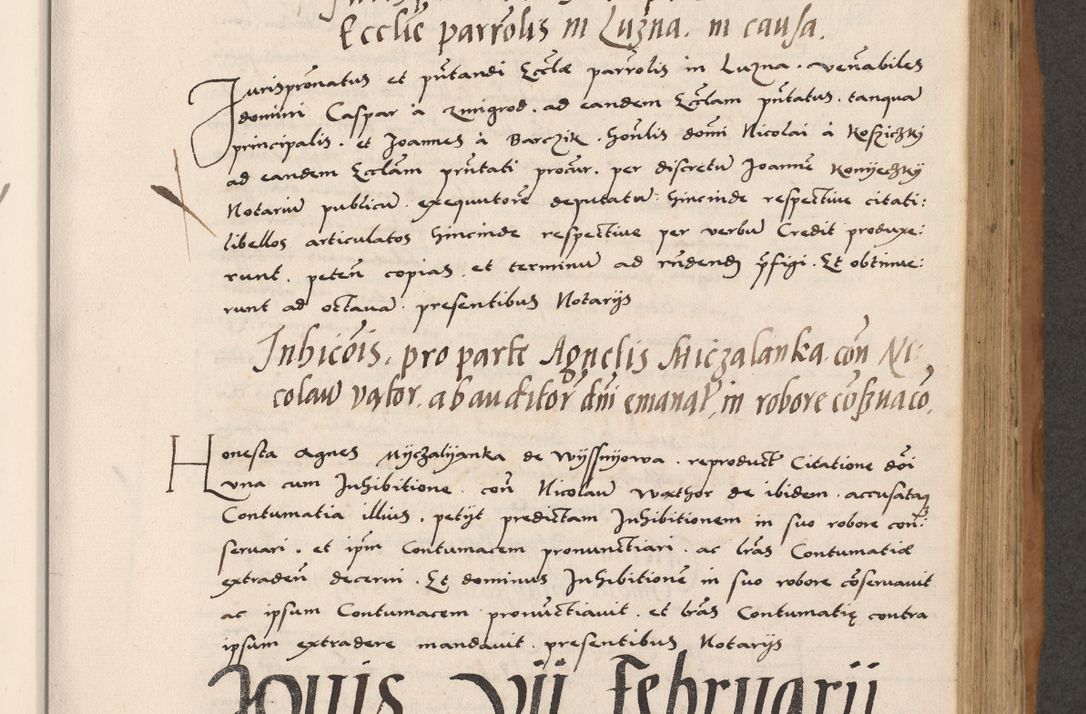 Ecclie parrolis in Luzna. in causa.
Jurispronatus et pntandi Eccle parrolis in Luzna. venabiles
domini Caspar à zmigrod. ad eandem Ecclam pntatus. tanqua
principalis. et Joannes à Barczik. honlis domi Nicolai à Kosziczki
ad eandem Ecclam prntati procur. per discretu Joanne Konyeczky
Notariu publicu. exequutore deputatu: hincinde respective citati:
libellos articulatos hincinde respective per verbu Credit produxe:
runt. peten copias. et terminu ad rndend pfigi. Et obtinue:
runt ad octava. presentibus Notarijs
Inhicois. pro parte Agnetis Miczalanka. con Ni:
colau vator. ab auditor dni emanat, in robore cosvaco.
Honesta Agnes Myczalyanka de Wyssnyowa. reproduct Citatione doi
vna cum Inhibitione. con Nicolau Wathor de ibidem. accusataq
Contumatia illius. petijt predictam Inhibitionem in suo robore con:
servari. et ipm Contumacem pronunctiari. ac lras Contumatie
extraden decerni. Et dominus Inhibitione in suo robore coservavit
ac ipsum Contumacem pronuctiavit. et lras Contumatię contra
ipsum extradere mandavit. presentibus Notarijs
Jouis vij Februarij